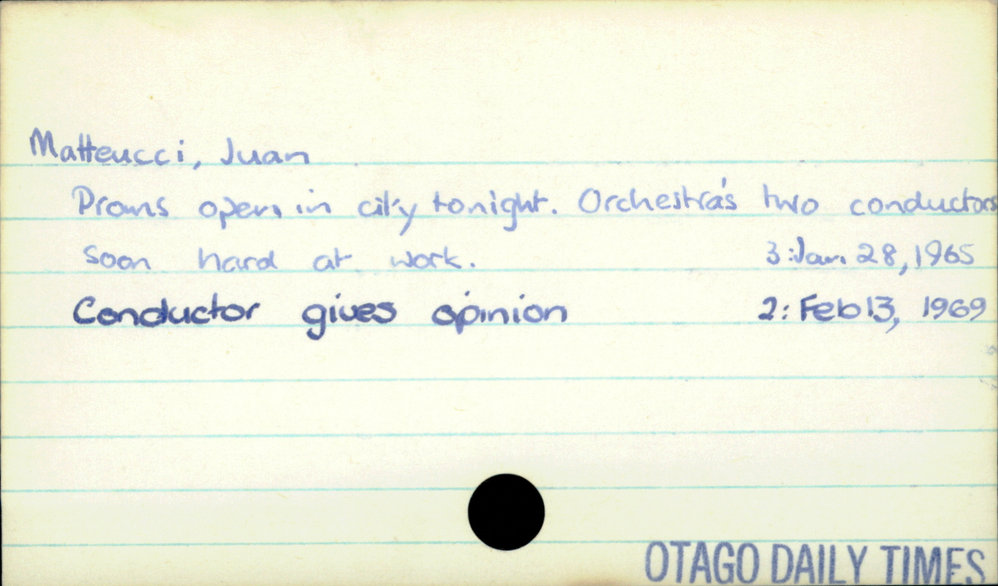 Matteucci, Juan
Proms open in city tonight. Orchestra's two conductors
soon hard at work. 3:Jan 28, 1965
Conductor gives opinion 2: Feb 13, 1969
OTAGO DAILY TIMES